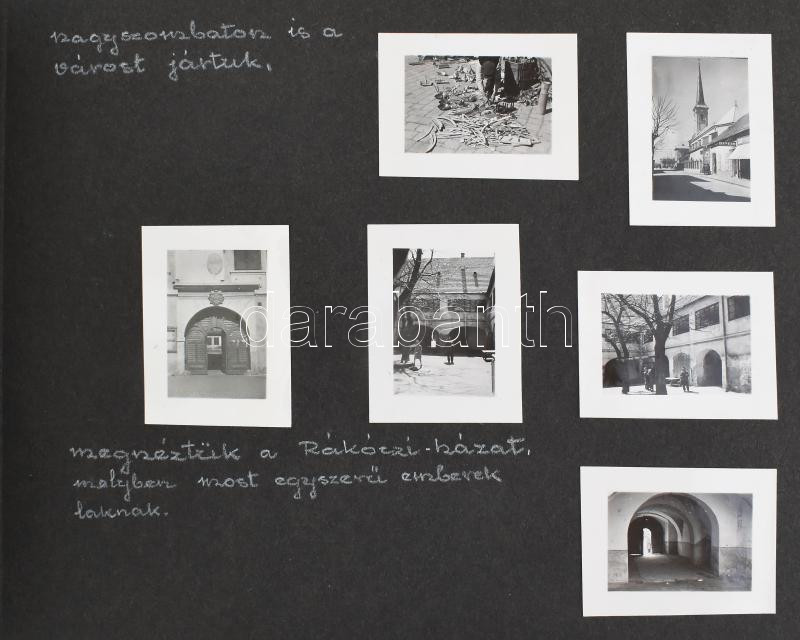 nagyszombaton is a
várost jártuk,
darabanth
megnéztük a Rákóczi-házat,
melyben most egyszerű emberek
laknak.